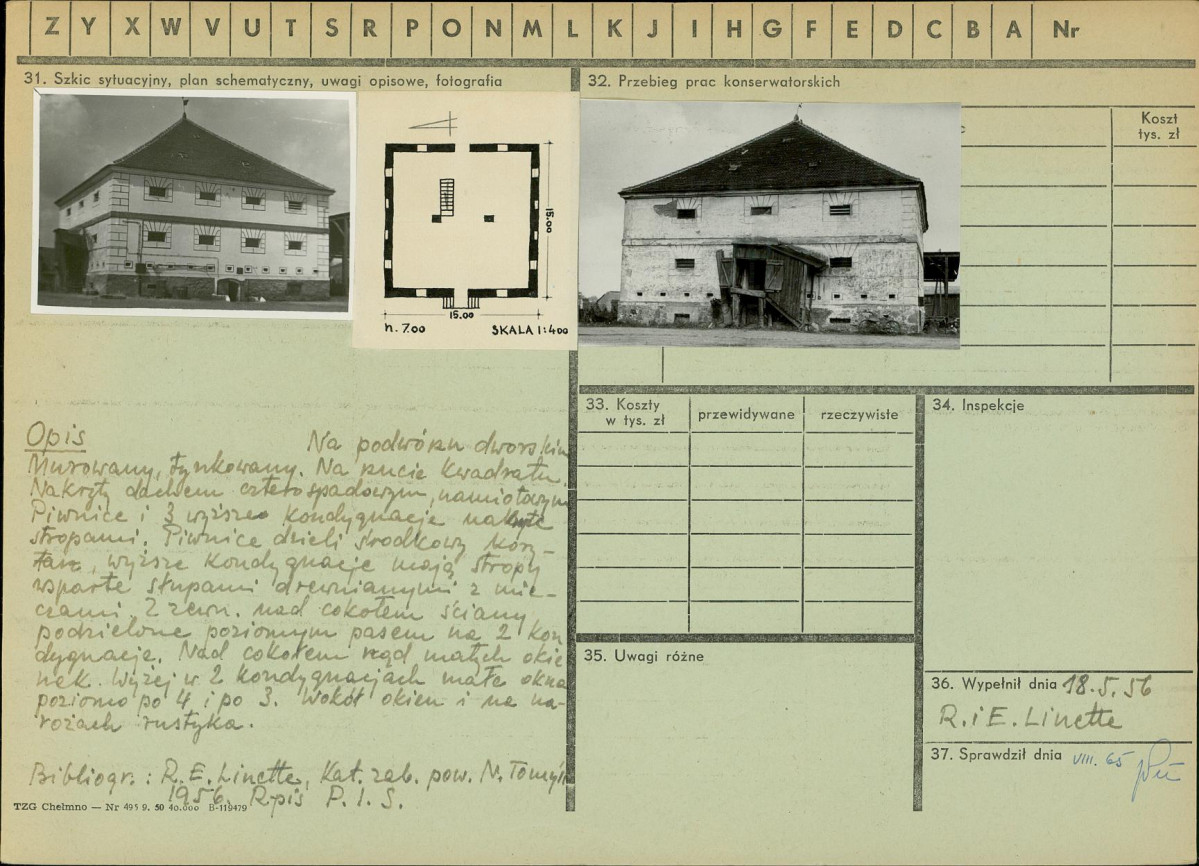 Z Y X W V U T S R P O N M L K J I H G F E D C B A Nr
31. Szkic sytuacyjny, plan schematyczny, uwagi opisowe, fotografia
15.00
15.00
h. 7.00 SKALA 1:400
Opis Na podwórzu dworskim
Murowany, tynkowany. Na rzucie kwadratu.
Nakryty dachem czterospadowym, namiotowym
Piwnice i 3 wyższe kondygnacje nakryte
stropami. Piwnice dzieli środkowy kory-
tarz, wyższe kondygnacje mają stropy
wsparte słupami drewnianymi z mie-
czami. Z zewn. nad cokołem ściany
podzielone poziomym pasem na 2 kon
dygnacje. Nad cokołem rząd małych okie
nek. Wyżej w 2 kondygnacjach małe okna
poziomo po 4 i po 3. Wokół okien i na na-
rożach rustyka.
Bibliogr.: R. E. Linette, Kat. zab. pow. N. Tomyśl
1956. Rpis P. I. S.
TZG Chełmno — Nr 495 9. 50 40.000 B-119479
32. Przebieg prac konserwatorskich
Koszt
tys. zł
33. Koszty
w tys. zł
przewidywane
rzeczywiste
34. Inspekcje
35. Uwagi różne
36. Wypełnił dnia 18.5.56
R. i E. Linette
37. Sprawdził dnia VIII. 65